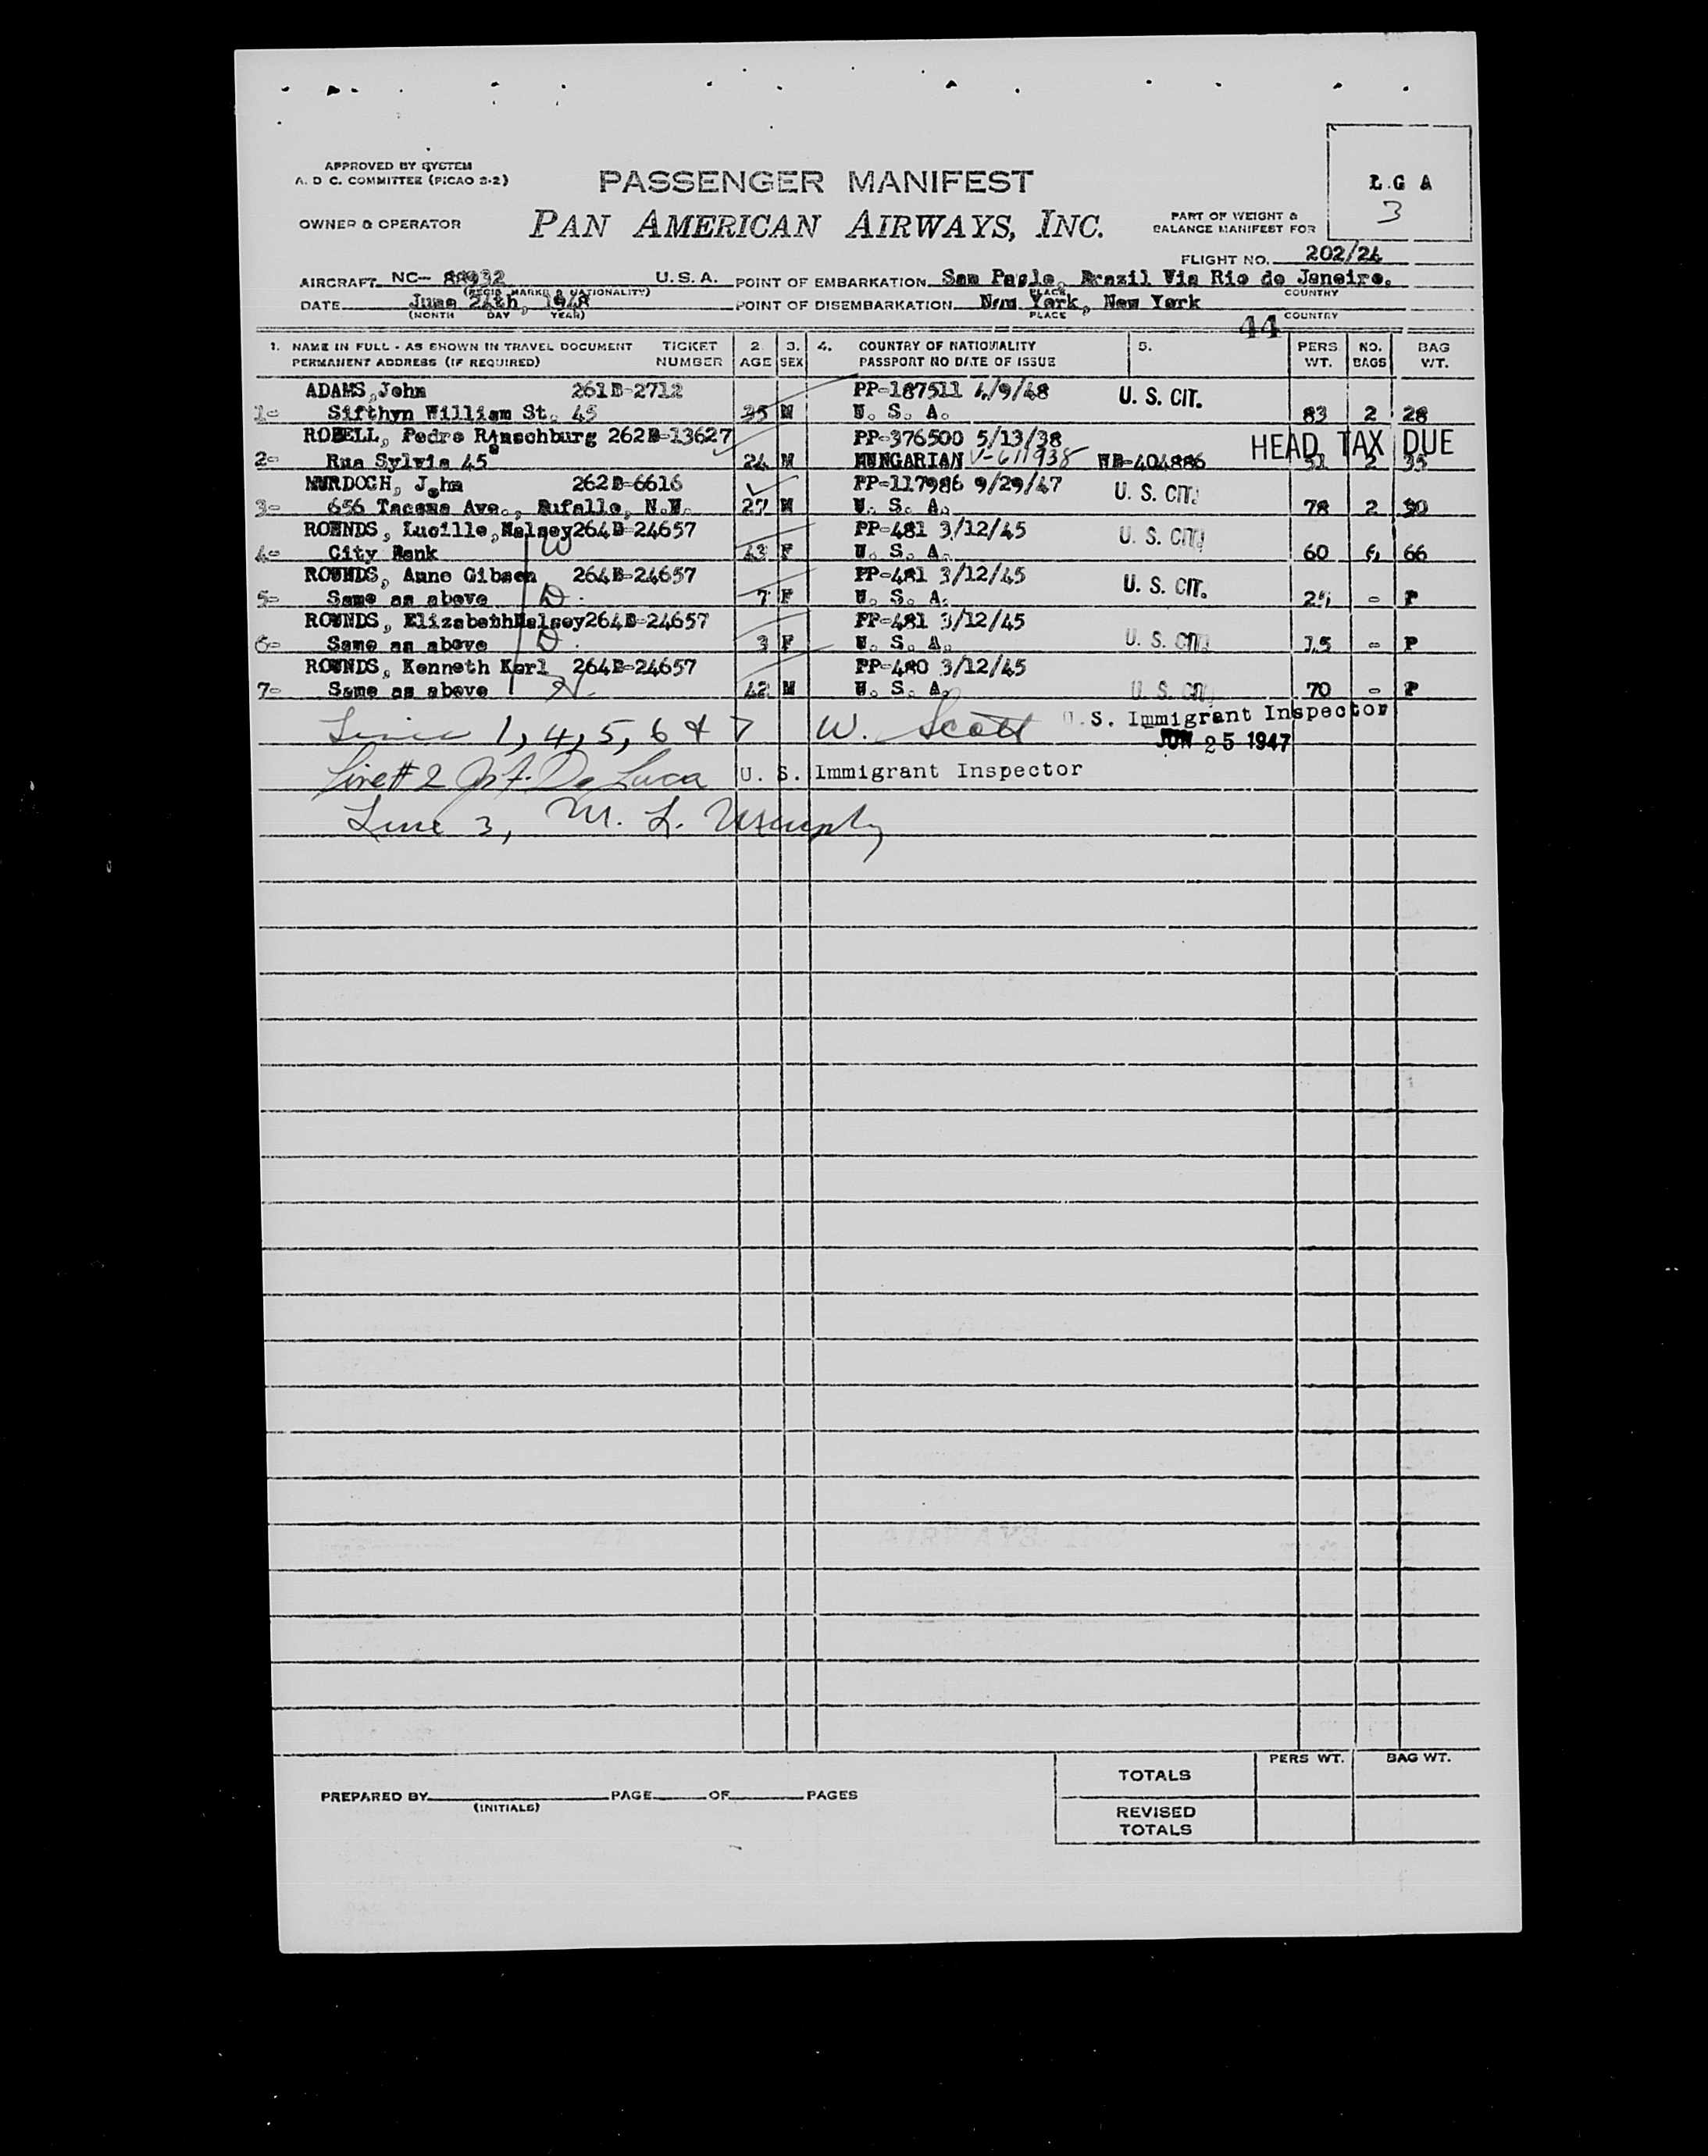 APPROVED BY SYSTEM
A. D C. COMMITTEE (PICAO 2-2)
PASSENGER MANIFEST
L.G A
3
OWNER & OPERATOR
PAN AMERICAN AIRWAYS, INC.
PART OF WEIGHT &
BALANCE MANIFEST FOR
FLIGHT NO. 202/24
AIRCRAFT NC- 88932 U.S.A. POINT OF EMBARKATION Sao Paulo, Brazil Via Rio de Janeiro.
(REGIS. MARKS & NATIONALITY) PLACE COUNTRY
DATE June 24th, 1948 POINT OF DISEMBARKATION New York, New York
(MONTH DAY YEAR) PLACE COUNTRY
44
1. NAME IN FULL - AS SHOWN IN TRAVEL DOCUMENT TICKET 2. 3. 4. COUNTRY OF NATIONALITY 5. PERS NO. BAG
PERMANENT ADDRESS (IF REQUIRED) NUMBER AGE SEX PASSPORT NO DATE OF ISSUE WT. BAGS WT.
ADAMS, John 261B-2712 PP-187511 4/9/48 U. S. CIT.
1- Sifthyn William St. 45 35 M U. S. A. 83 2 28
ROBELL, Pedro Ranschburg 262B-13627 PP-376500 5/13/38 HEAD TAX DUE
2- Rua Sylvia 45 24 M HUNGARIAN V-611938 WB-404886 2 35
MURDOCH, John 262B-6616 PP-117986 9/29/47 U. S. CIT.
3- 656 Tacoma Ave., Bufallo, N.Y. 27 M U. S. A. 78 2 30
ROUNDS, Lucille, Kelsey 264B-24657 PP-481 3/12/45 U. S. CIT.
4- City Bank W 43 F U. S. A. 60 66
ROUNDS, Anne Gibson 264B-24657 PP-481 3/12/45 U. S. CIT.
5- Same as above D. 7 F U. S. A. - P
ROUNDS, Elizabeth Kelsey 264B-24657 PP-481 3/12/45
6- Same as above D. 3 F U. S. A. U. S. CIT. 15 - P
ROUNDS, Kenneth Karl 264B-24657 PP-480 3/12/45
7- Same as above H. 42 M U. S. A. U. S. CIT. 70 - P
Lines 1, 4, 5, 6 & 7 W. Scott U.S. Immigrant Inspector
JUN 25 1947
Line # 2 De Luca U. S. Immigrant Inspector
Line 3, M. L. Murphy
PERS WT. BAG WT.
TOTALS
PREPARED BY PAGE OF PAGES
(INITIALS)
REVISED
TOTALS